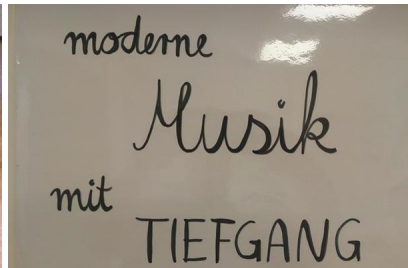 moderne
Musik
mit
TIEFGANG